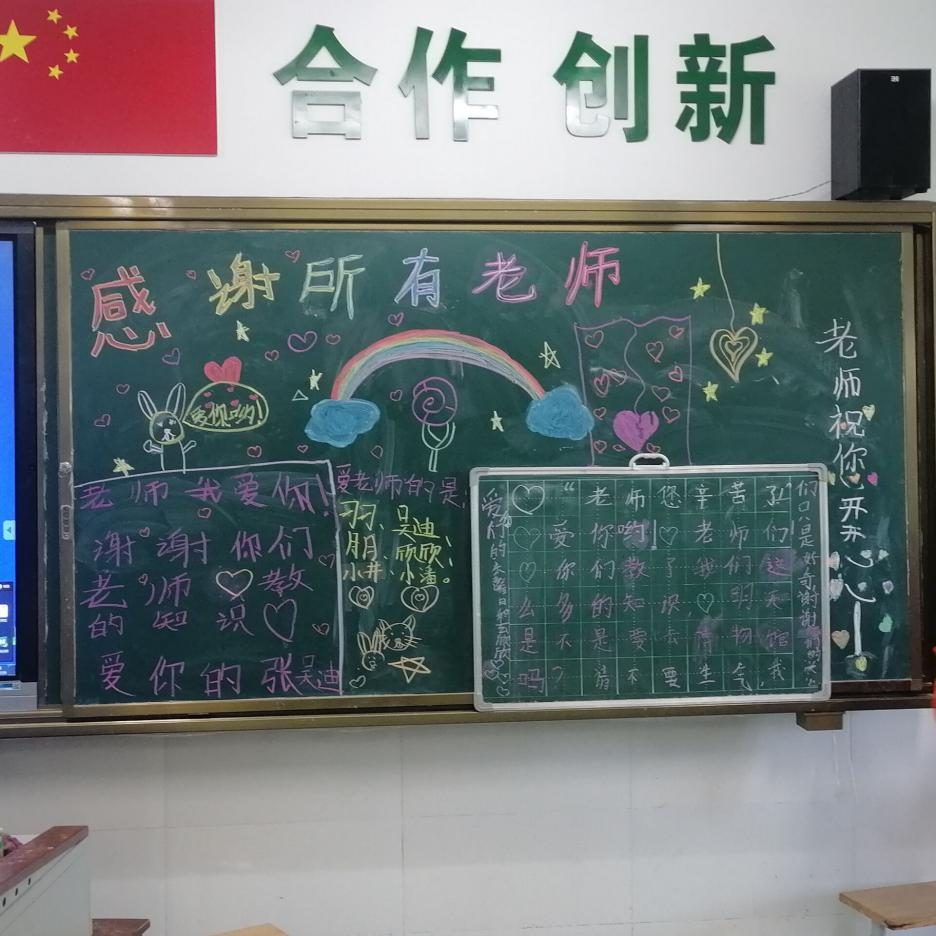 合作 创新
感谢所有老师
爱你哟!
老师祝你开心心
老师我爱你!
谢谢你们
老师♡教
的知识♡
爱你的张吴迪
爱老师的是
习习、吴迪
朋、欣欣、
小井 小潘。
♡“老师您辛苦了!”
♡爱你哟!♡老师们
♡你们教了我们这
么多的知识♡明知
是不是要去博物馆
吗?请不要生气,我
们只是好奇谢谢
爱你们的